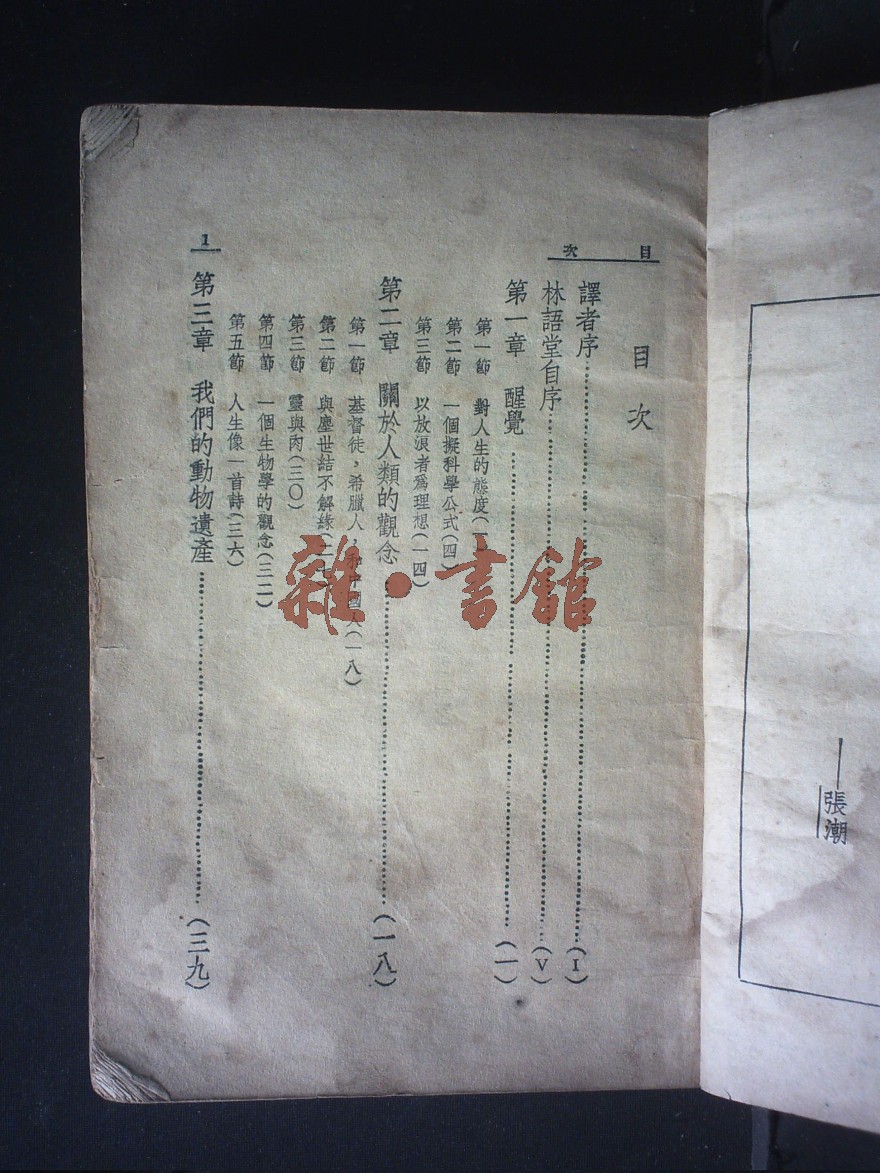 張潮
目次
目次
譯者序(I)
林語堂自序(V)
第一章 醒覺(一)
第一節 對人生的態度(一
第二節 一個擬科學公式(四)
第三節 以放浪者爲理想(一四)
第二章 關於人類的觀念(一八)
第一節 基督徒,希臘人,和中國人(一八)
第二節 與塵世結不解緣(二七)
第三節 靈與肉(三〇)
第四節 一個生物學的觀念(三二)
第五節 人生像一首詩(三六)
第三章 我們的動物遺產(三九)
1
雜·書館